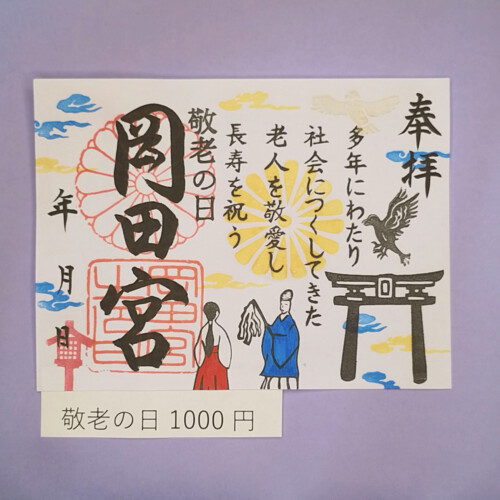 奉拝
多年にわたり
社会につくしてきた
老人を敬愛し
長寿を祝う
敬老の日
岡田宮
年月日
敬老の日 1000 円